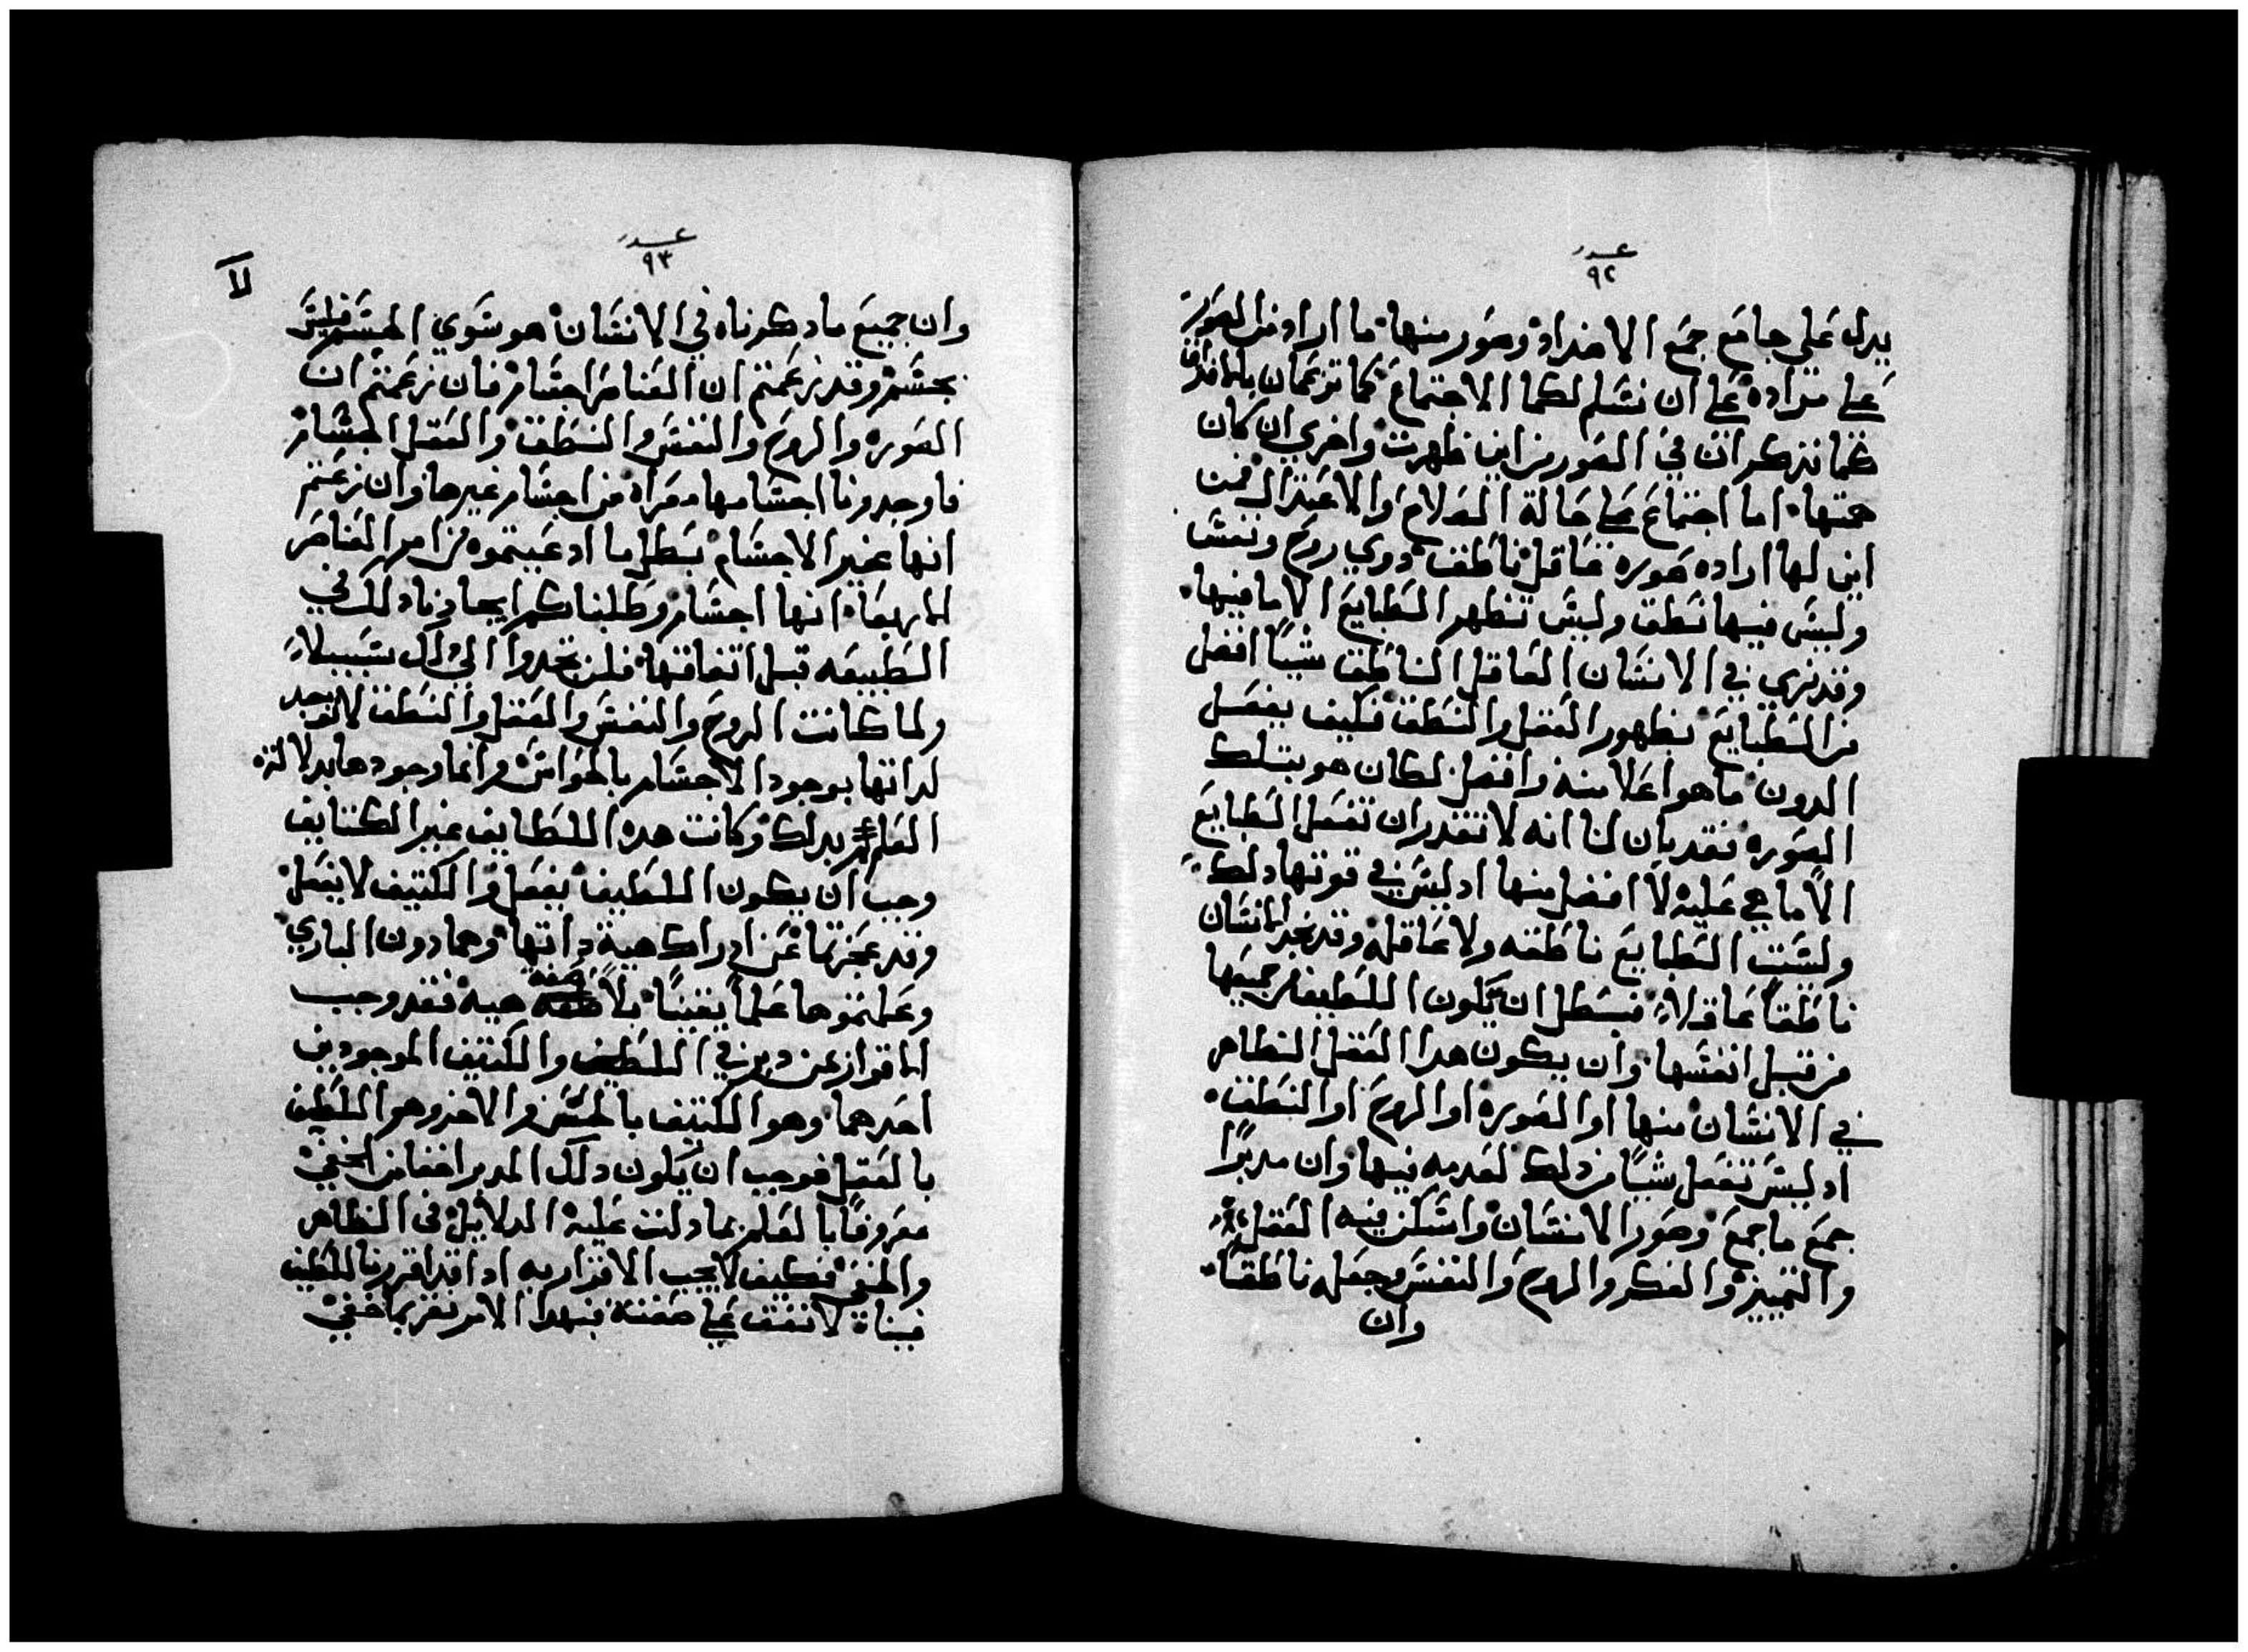 عدد
٩٢
يدل علي جامع جمع الاضداد وصور منها ما اراد من الصور
علي مراده علي ان نسلم لكما الاجتماع كما تزعمان بالاتفاق
فما تذكران في الصور من اين ظهرت واخري ان كان
صحتها اما اجتماع علي حالة الصلاح والاعتدال فمن
اين لها اراده صوره عاقل ناطق دوي روح ونفس
وليس فيها نطق وليس تظهر الطبايع الا ما فيها
وقد نري في الانسان العاقل الناطق شيا افضل
من الطبايع بظهور العقل والنطق فكيف يفعل
الدون ما هو اعلا منه وافضل لكان هو بتلك
الصوره فقد بان لنا انه لا تقدر ان تفعل الطبايع
الا ما هي عليه لا افضل منها اد ليس في قوتها دلك
وليست الطبايع ناطقه ولا عاقله وقد نجد الانسان
ناطقاً عاقلاً فبطل ان تكون اللطيفه جميعها
من قبل انفسها وان يكون هدا العقل الظاهر
في الانسان منها او الصوره او الروح او النطق
اد ليس تفعل شيا من دلك لعدمه فيها وان مدبراً
جمع ما جمع وصور الانسان واسكن فيه العقل
والتمييز والفكر والروح والنفس وجعله ناطقاً
وان
عدد
٩٣
لا
وان جميع ما دكرناه في الانسان هو سوي الجسم فليس
بجسم وقد زعمتم ان العناصر اجسام فان زعمتم ان
الصوره والروح والنفس والنطق والعقل اجسام
فاوجدونا اجسامها معراه من اجسام غيرها وان زعمتم
انها غير الاجسام بطل ما ادعيتموه من امر العناصر
الاربعه انها اجسام وطلبناكم ايجادنا دلك في
الطبيعه قبل اتفاقها فلن تجدوا الي دلك سبيلاً
ولما كانت الروح والنفس والعقل والنطق لا توجد
لداتها بوجود الاجسام بالحواس وانما وجودها بدلالة
العلم بدلك وكانت هده اللطايف غير الكتايف
وجب ان يكون اللطيف يفعل والكتيف لا يفعل
وقد عجزتما عن ادراك هية داتها وهما دون الباري
وعلمتموها علماً يقيناً بلا صفة هيه فقد وجب
الاقرار عن دبر في اللطيف والكتيف الموجودين
احدهما وهو الكتيف بالحس والاخر وهو اللطيف
بالعقل فوجب ان يكون دلك المدبر اخفا من الخفي
معروفاً بالعلم بما دلت عليه الدلايل في الظاهر
والخفي فكيف لا يجب الاقرار به اد اقررنا باللطيف
فيناه لا نقف علي صفته فبهدا الامر نقر بما خفي